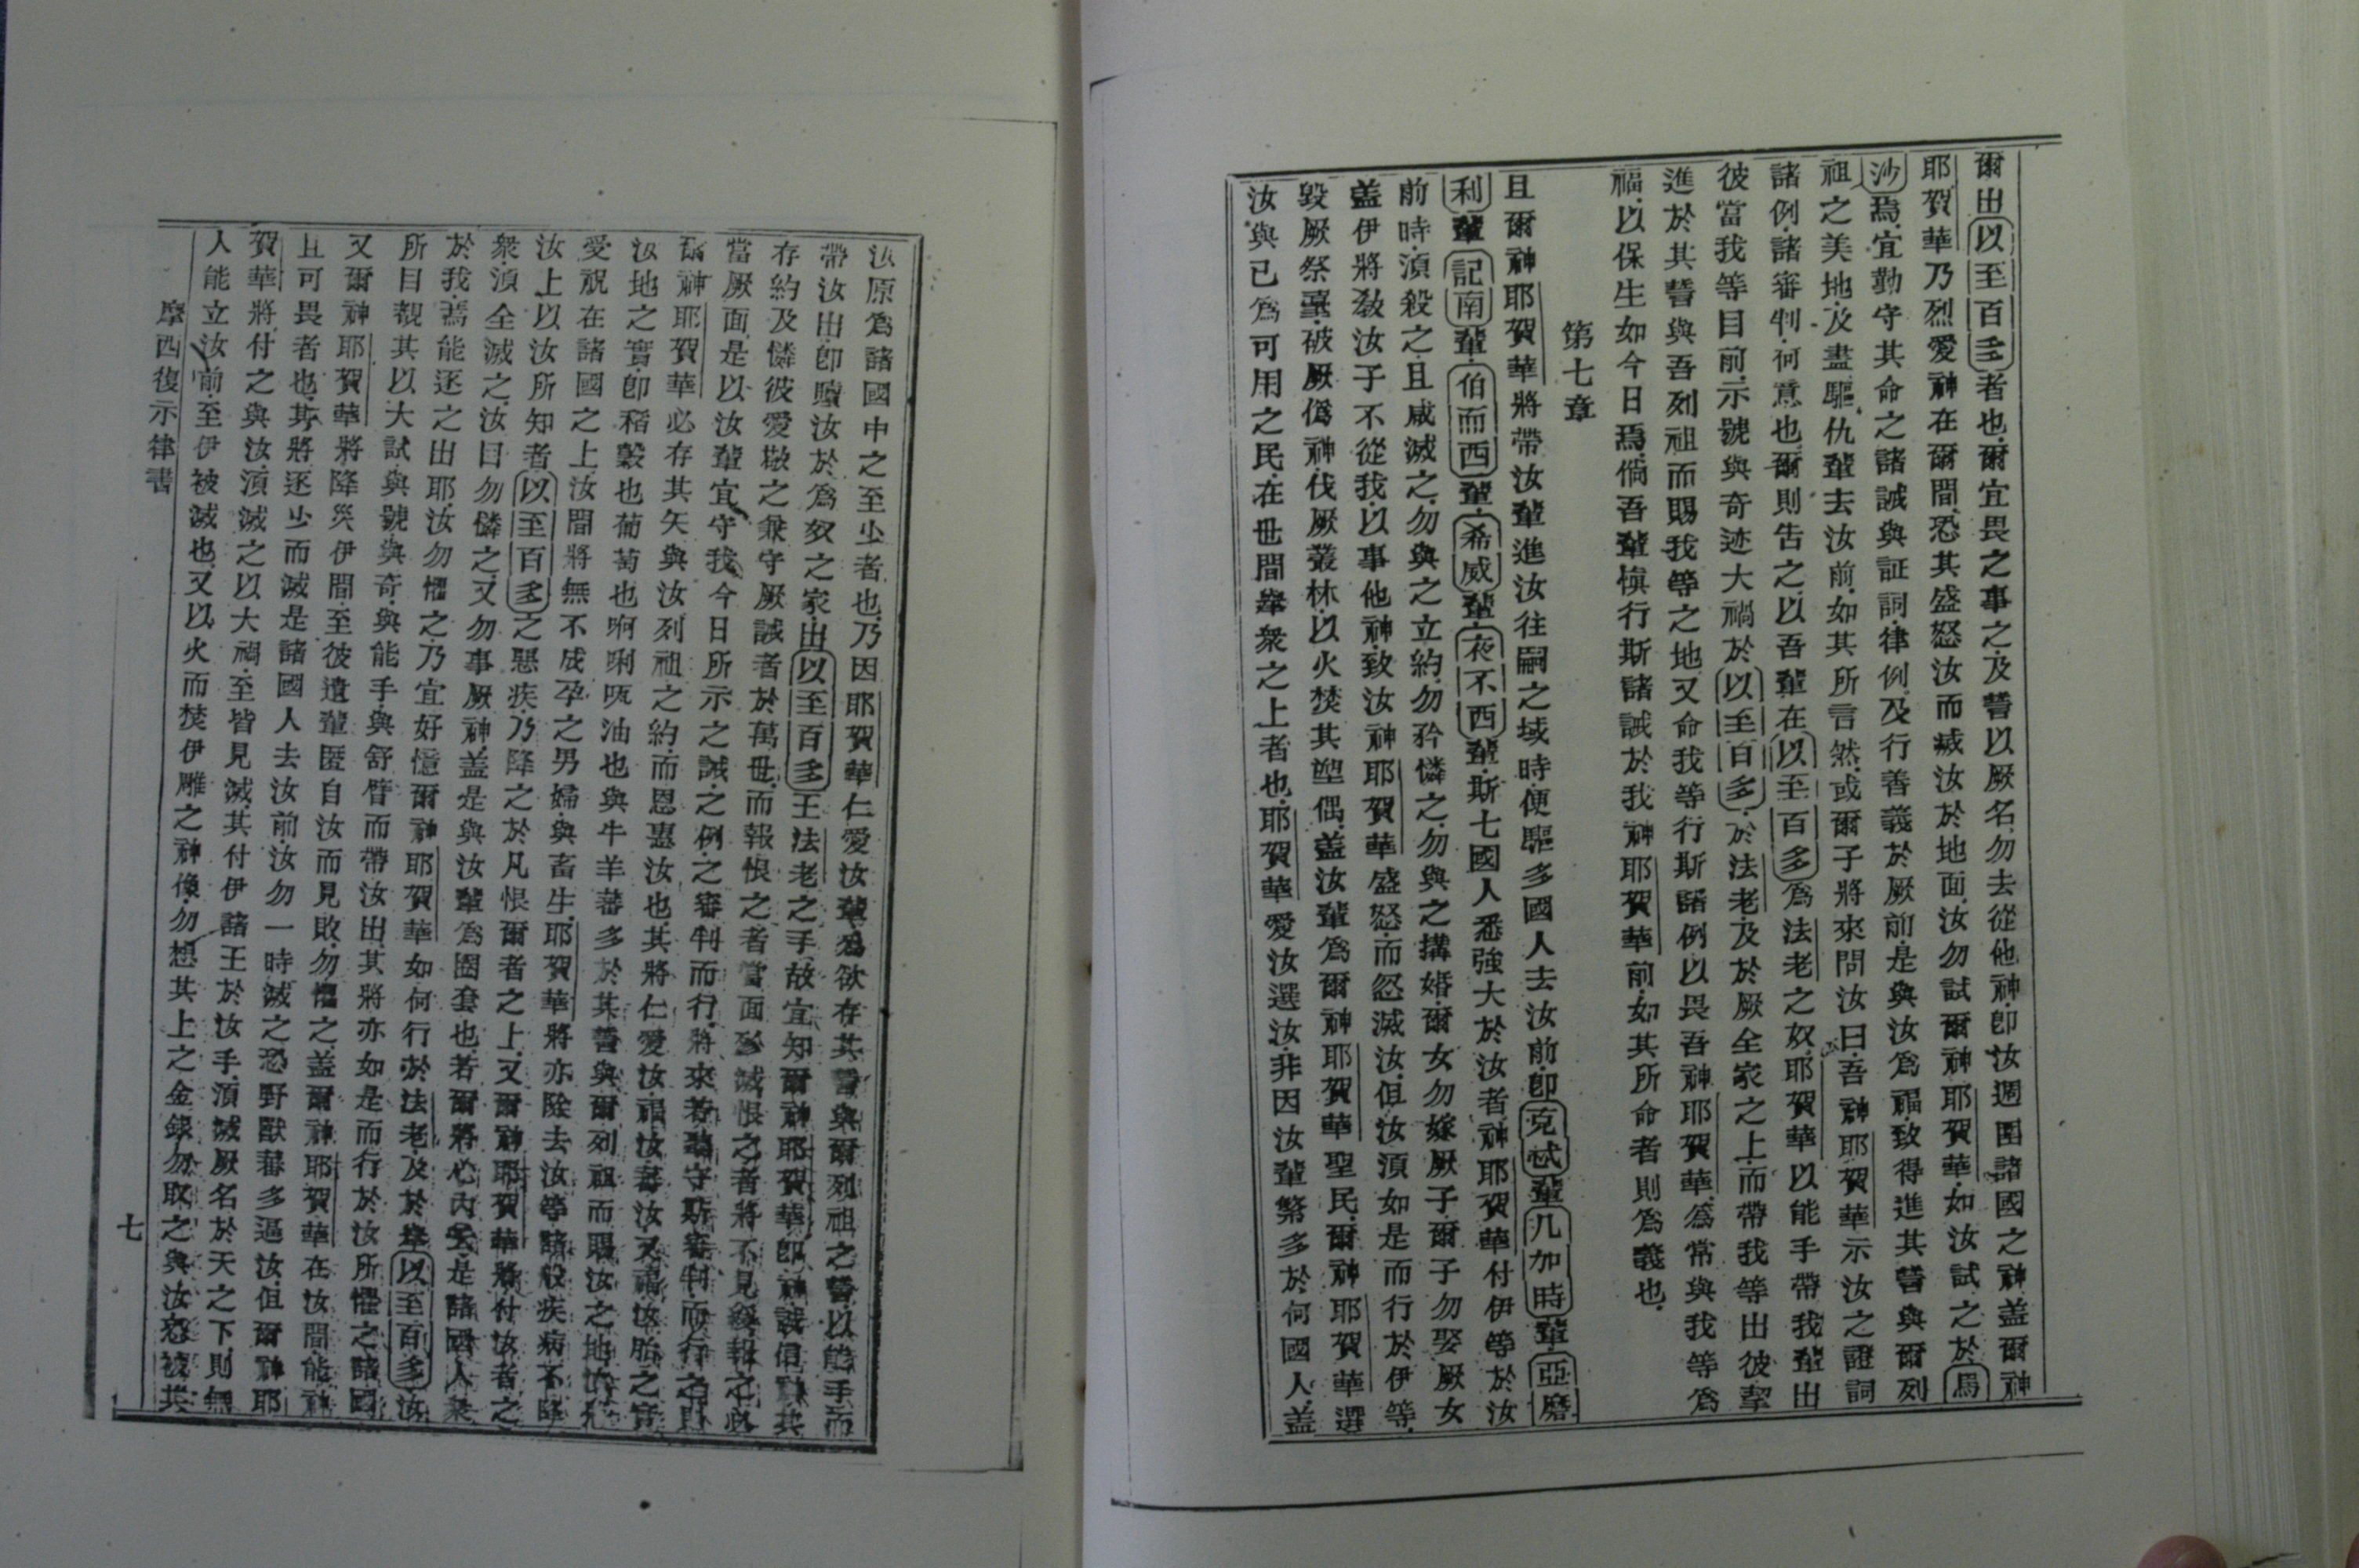 爾出以至百多者也.爾宜畏之事之.及誓以厥名.勿去從他神.卽汝週圍諸國之神.盖爾神
耶賀華乃烈愛神在爾間.恐其盛怒汝而滅汝於地面.汝勿試爾神耶賀華.如汝試之於馬
沙焉.宜勤守其命之諸誡與証詞.律例.及行善義於厥前.是與汝爲福.致得進其誓與爾列
祖之美地.及盡驅仇輩去汝前.如其所言然.或爾子將來問汝曰.吾神耶賀華示汝之證詞
諸例.諸審判.何意也.爾則告之.以吾輩在以至百多爲法老之奴.耶賀華以能手帶我輩出
彼當我等目前.示號與奇迹大禍於以至百多.於法老.及於厥全家之上.而帶我等出彼挈
進於其誓與吾列祖而賜我等之地.又命我等行斯諸例.以畏吾神耶賀華.爲常與我等爲
福.以保生如今日焉.倘吾輩愼行斯諸誡於我神耶賀華前.如其所命者.則爲義也.
第七章
且爾神耶賀華將帶汝輩進汝往嗣之域時.便驅多國人去汝前.卽克忒輩.几加時輩.亞磨
利輩.記南輩.伯而西輩.希威輩.夜不西輩.斯七國人悉強大於汝者.神耶賀華付伊等於汝
前時.湏殺之.且咸滅之.勿與之立約.勿矜憐之.勿與之搆婚.爾女勿嫁厥子.爾子勿娶厥女
盖伊將敎汝子不從我.以事他神.致汝神耶賀華盛怒.而忽滅汝.但汝湏如是而行於伊等.
毀厥祭臺.被厥僞神.伐厥叢林.以火焚其塑偶.盖汝輩爲爾神耶賀華聖民.爾神耶賀華選
汝.與已爲可用之民.在世間舉衆之上者也.耶賀華愛汝選汝.非因汝輩繁多於何國人.盖
汝原爲諸國中之至少者也.乃因耶賀華仁愛汝輩.爲欲存其誓與爾列祖之誓.以能手而
帶汝出.卽贖汝於爲奴之家.出以至百多王法老之手.故宜知爾神耶賀華.卽神.誠信神.其
存約及憐彼愛敬之兼守厥誡者於萬世.而報恨之者當面殄滅.恨之者將不見緩.報之必
當厥面.是以汝輩宜守我今日所示之誡.之例.之審判而行.將來若聽守斯審判.而行之.則
爾神耶賀華必存其矢與汝列祖之約.而恩惠汝也.其將仁愛汝.福汝.蕃汝.又福汝胎之實
汝地之實.卽稻穀也葡萄也啊唎㕭油也與牛羊蕃多於其誓與爾列祖而賜汝之地.汝見
愛祝在諸國之上.汝間將無不成孕之男婦.與畜生.耶賀華將亦除去汝等諸般疾病不降
汝上.以汝所知者以至百多之惡疾.乃降之於凡恨爾者之上.又爾神耶賀華將付汝者之
衆.湏全滅之.汝目勿憐之.又勿事厥神.盖是與汝輩爲圈套也.若爾將心內云.是諸國人衆
於我.焉能逐之出耶.汝勿懼之.乃宜好憶爾神耶賀華如何行於法老.及於舉以至百多汝
所目覩其以大試與號.與奇.與能手.與舒臂而帶汝出.其將亦如是而行於汝所懼之諸國
又爾神耶賀華將降災伊間.至彼遺輩匿自汝而見敗.勿懼之.盖爾神耶賀華在汝間.能神
且可畏者也.其將逐少而滅是諸國人去汝前.汝勿一時滅之.恐野獸蕃多逼汝.但爾神耶
賀華將.付之與汝.湏滅之以大禍.至皆見滅.其付伊諸王於汝手.湏滅厥名於天之下.則無
人能立汝前.至伊被滅也.又以火而焚伊雕之神像.勿想其上之金銀.勿取之與汝.恐被其
摩西復示律書
七